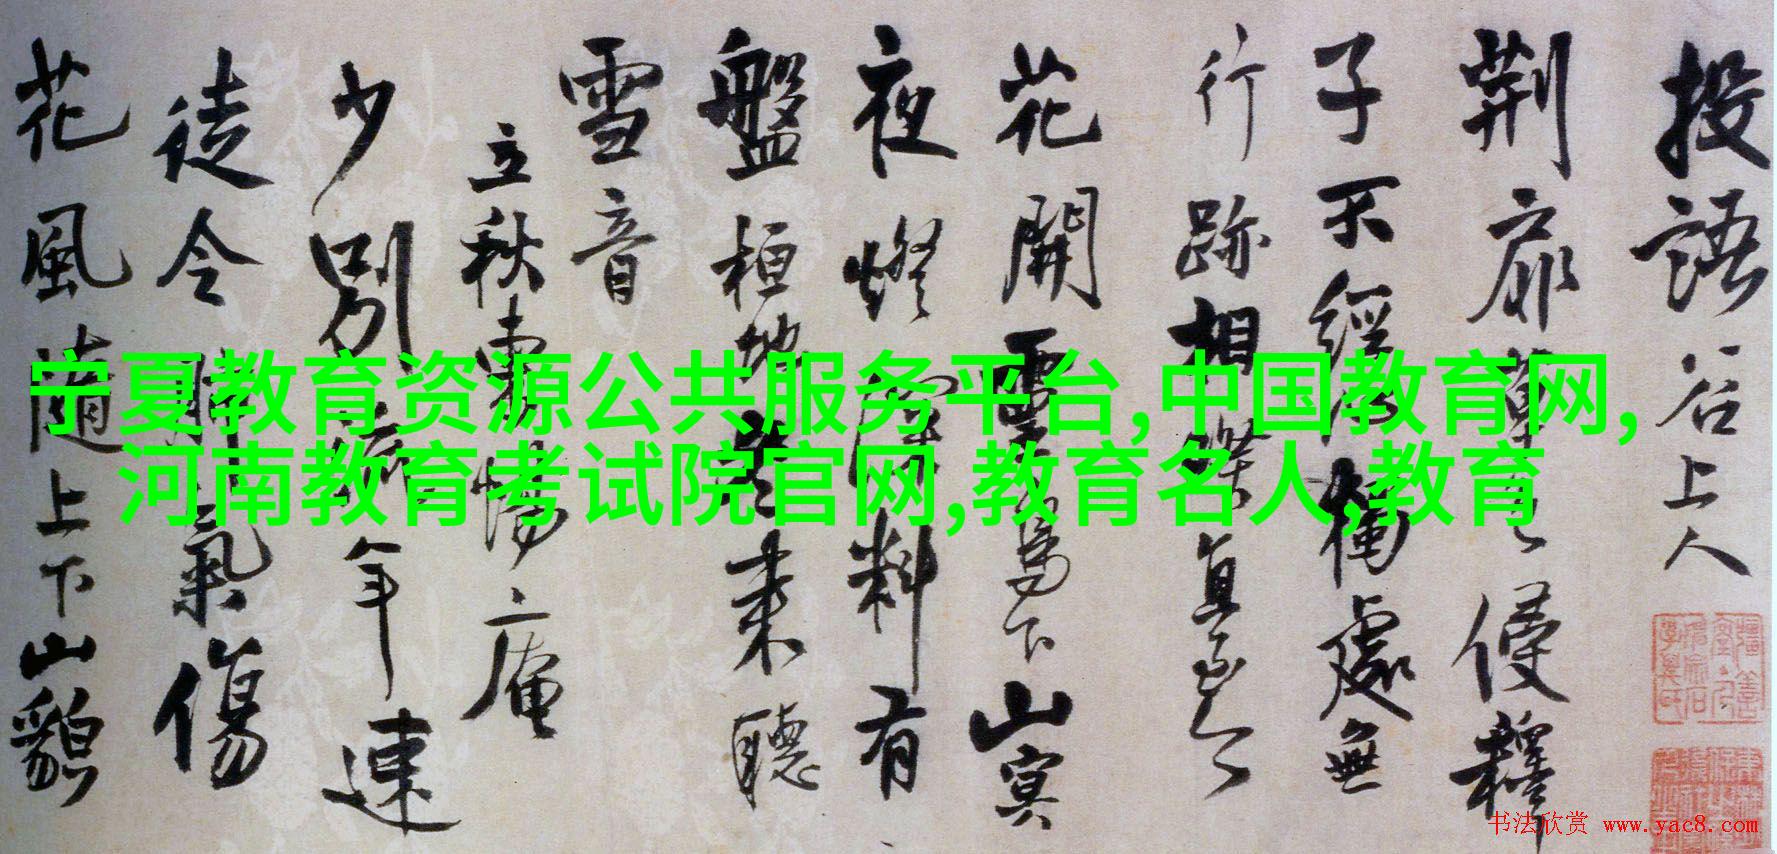 投語谷上人
荆扉草侵釋
子不經過獨處無
行跡相真
花開雲下山寞
夜燈深料有
盤桓地来聽
雪音
立秋東庵
少別年速
徒令氣傷
花風隨上下山貌
宁夏教育资源公共服务平台,中国教育网,
河南教育考试院官网,教育名人,教育
书法欣赏 www.yac8.com